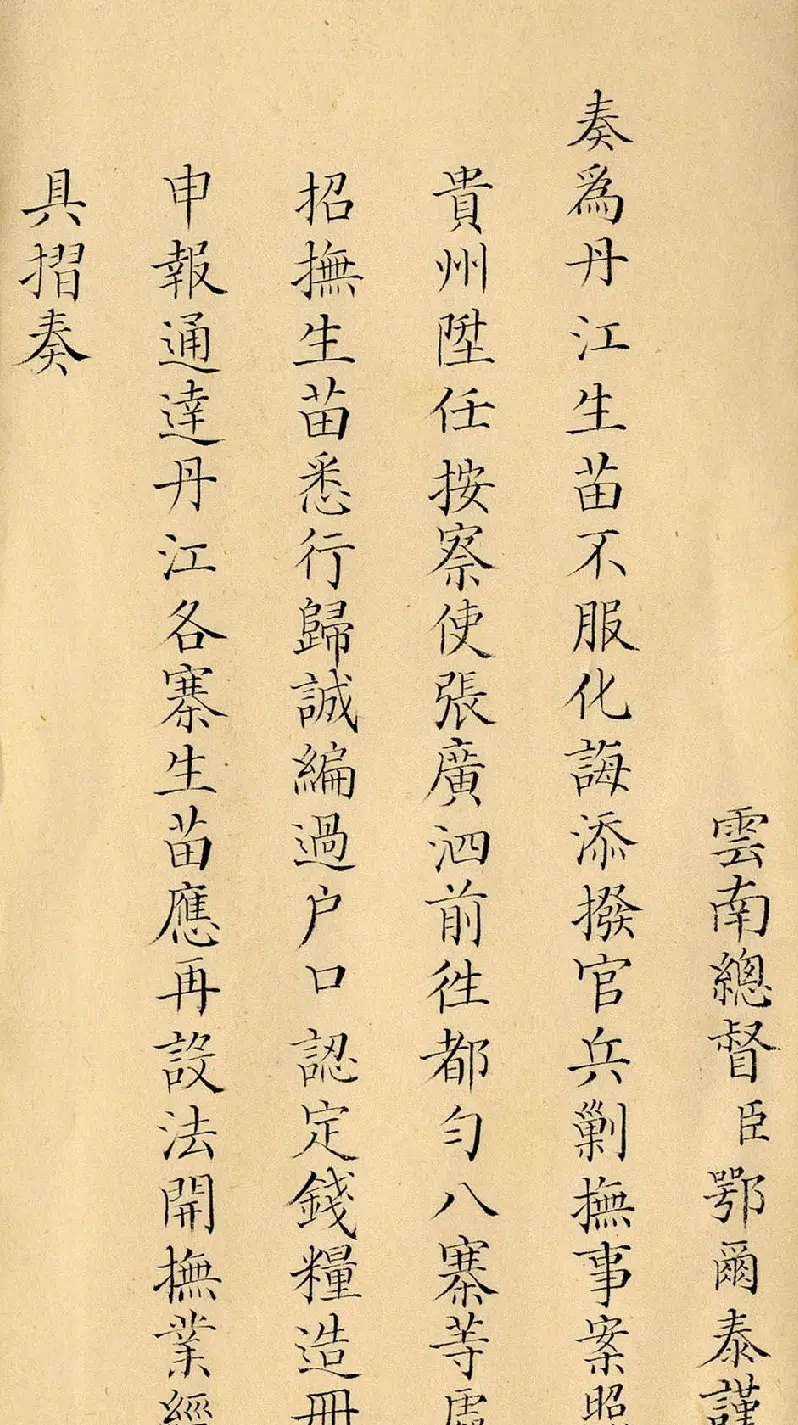 雲南總督臣鄂爾泰謹
奏爲丹江生苗不服化誨添撥官兵剿撫事案照
貴州陞任按察使張廣泗前徃都勻八寨等處
招撫生苗悉行歸誠編過户口認定錢糧造冊
申報通逹丹江各寨生苗應再設法開撫業經
具摺奏